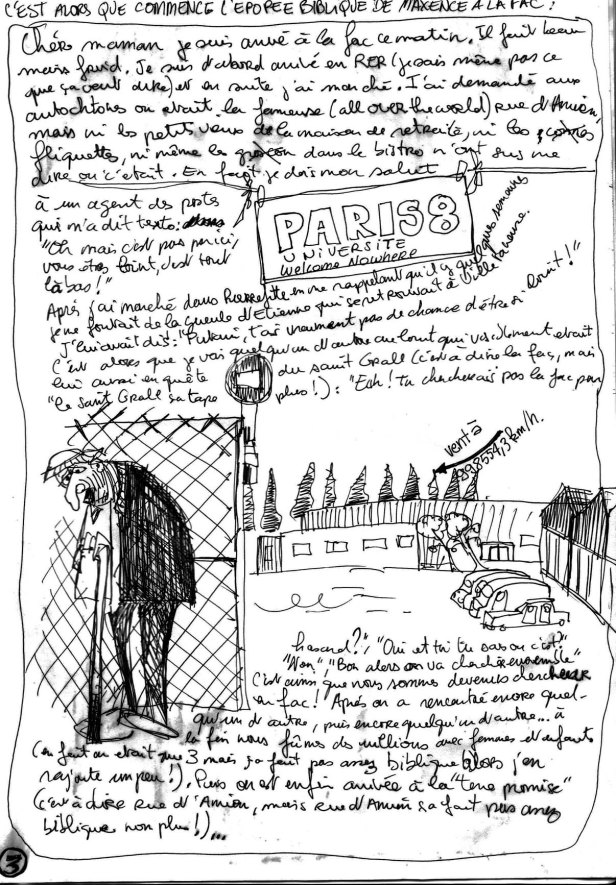 C'EST ALORS QUE COMMENCE L'EPOPEE BIBLIQUE DE MAXENCE A LA FAC!
Chère maman je suis arrivé à la fac ce matin. Il fait beau
mais froid. Je suis d'abord arrivé en RER (je sais même pas ce
que ça veut dire) et en suite j'ai marché. J'ai demandé aux
autochtones ou etait la fameuse (all over the world) rue d'Amien,
mais ni les petits vieux de la maison de retraite, ni les
fliquettes, ni même les garçon dans le bistro n'ont sus me
dire ou c'etait. En fait je dois mon salut
à un agent des postes
qui m'a dit texto:
"Oh mais c'est pas par ici,
vous êtes loint, c'est tout
là bas!"
PARIS 8
UNIVERSITE
Welcome Nowhere
Après j'ai marché dans Pierrefite en me rappelant qu'il y quelques semaines
je me foutrait de la gueule d'Etienne qui se retrouvait à Ville taneuse.
J'lui avait dis: "Putain, t'as vraument pas de chance d'être si loint!"
C'est alors que je vai quelqu'un d'autre au loint qui visiblement etait
lui aussi en quête du saint Graal (c'est à dire la fac, mais
"le saint Graal sa tape plus!): "Ech! Tu chercherais pas la fac par
vent à
898554,3 km/h.
hasard?", "Oui et toi tu sais ou c'est?"
"Non", "Bon alors on va chercher ensemble"
C'est ainsi que nous sommes devenus chercheur
en fac! Après on a rencontré encore quel-
qu'un d'autre, puis encore quelqu'un d'autre... à
la fin nous fûmes des millions avec femmes et enfants
(en fait on etait que 3 mais sa fait pas assez biblique alors j'en
rajoute un peu!). Puis on est enfin arrivée à la "terre promise"
(c'est à dire Rue d'Amien, mais Rue d'Amien sa fait pas assez
biblique non plus!)...
3